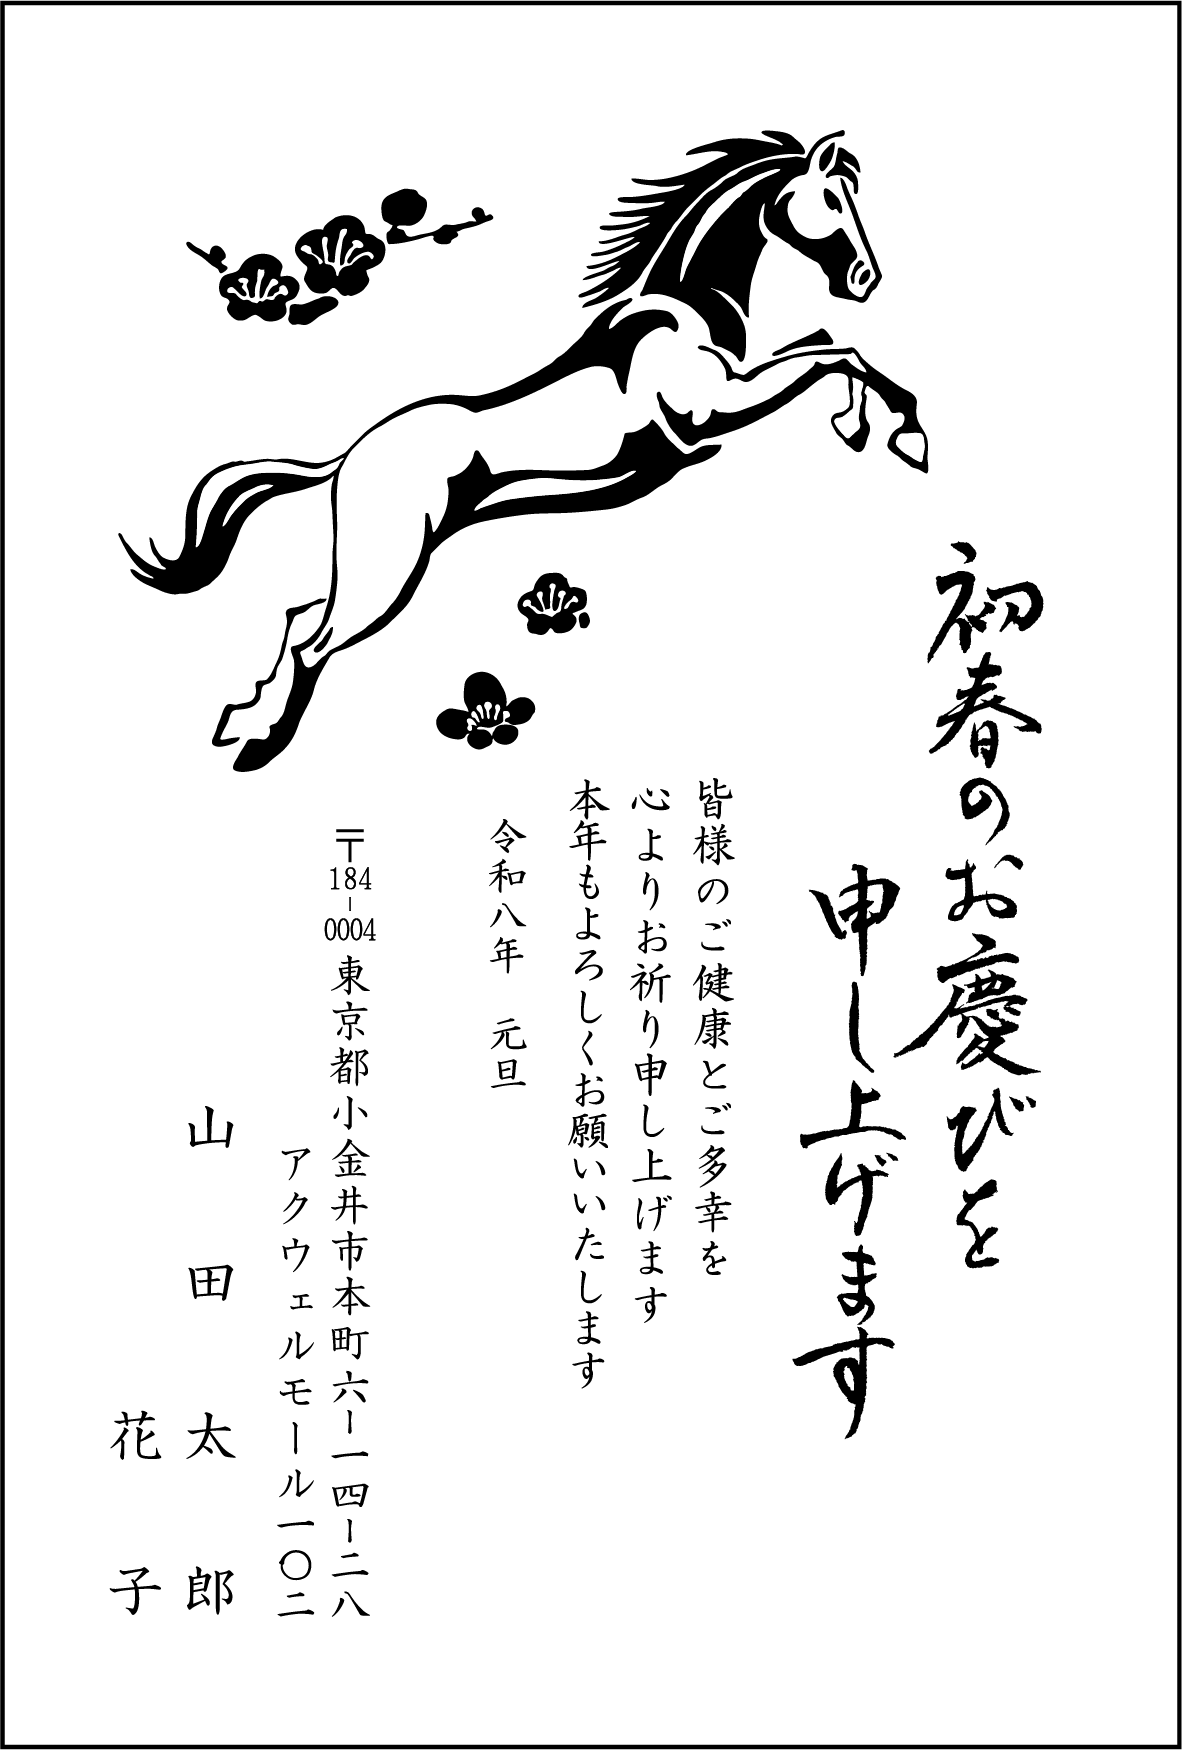 初春のお慶びを
申し上げます
皆様のご健康とご多幸を
心よりお祈り申し上げます
本年もよろしくお願いいたします
令和八年　元旦
〒184-0004 東京都小金井市本町六ー一四ー二八
アクウェルモール一〇二
山田太郎
花子